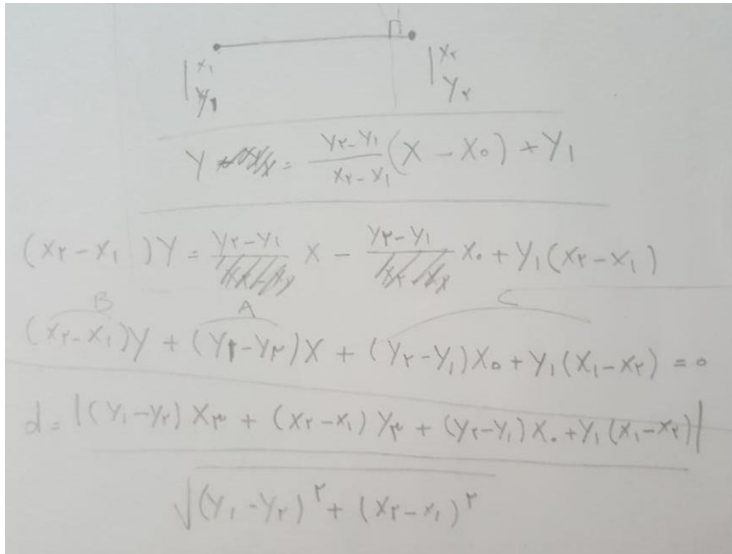 x₁ x₂
y₁ y₂
Y = (y₂-y₁)/(x₂-x₁) (X - X₀) + Y₁
(x₂-x₁)Y = y₂-y₁ X - y₂-y₁ X₀ + Y₁(x₂-x₁)
B A C
(x₂-x₁)Y + (y₁-y₂)X + (y₂-y₁)X₀ + Y₁(x₁-x₂) = ۰
d = |(y₁-y₂)X₃ + (x₂-x₁)Y₃ + (y₂-y₁)X₀ + Y₁(x₁-x₂)|
√(y₁-y₂)^۲ + (x₂-x₁)^۲